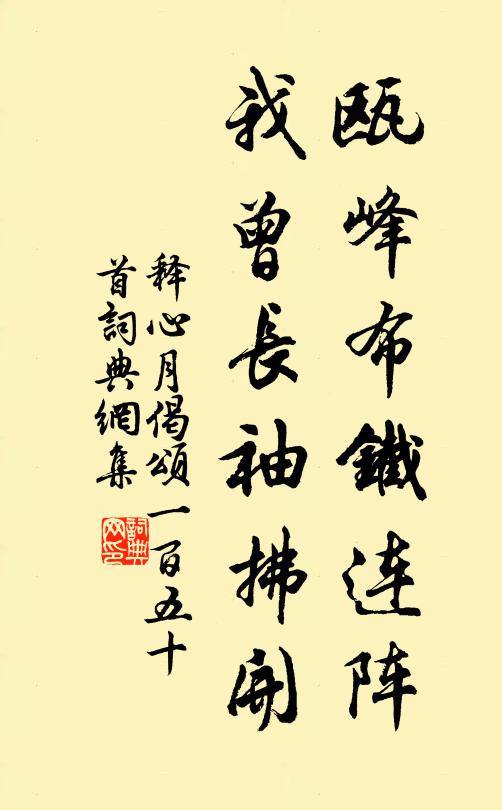 瓯峰布鐵连阵
我曾長袖拂開
释心月偈頌一百五十
首詞典網集
詞典网印